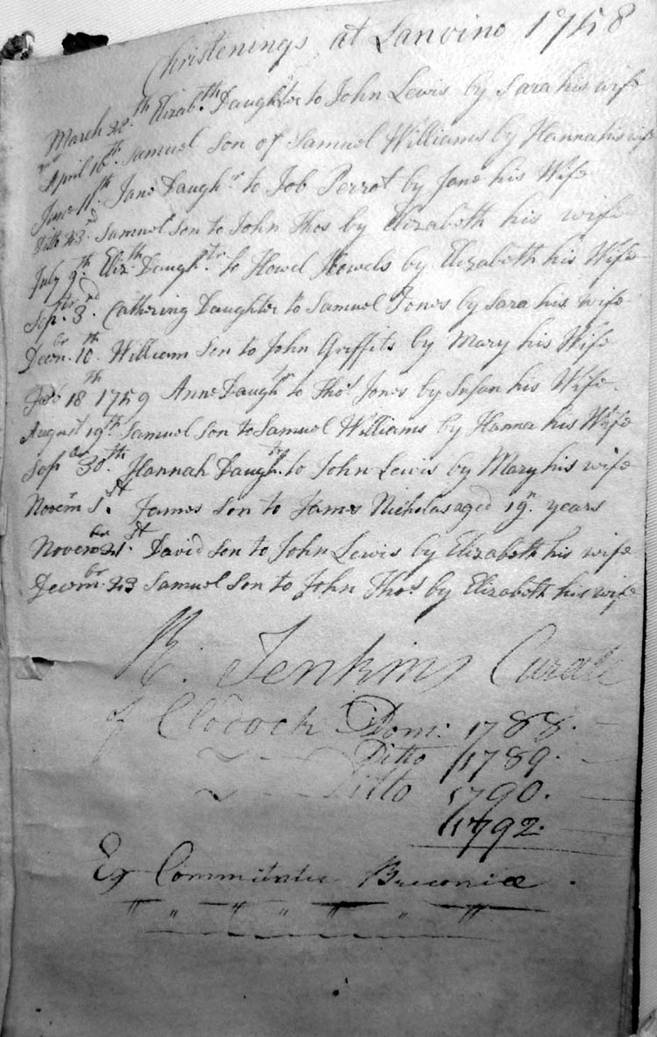 Christenings at Lanvino 1758
March 20th Elizabth Daughter to John Lewis by Sara his wife
April 16th Samuel Son of Samuel Williams by Hannah his wife
June 11th Jane Daughr to Job Perrot by Jane his Wife
23d Samuel Son to John Thos by Elizabeth his wife
July 9th Elizth Daughtr to Howel Howels by Elizabeth his Wife
Sepr 3rd Cathering Daughter to Samuel Jones by Sara his wife
Decmbr 10th William Son to John Griffits by Mary his Wife
Feb 18th 1759 Anne Daughtr to Thos Jones by Susan his Wife
August 19th Samuel Son to Samuel Williams by Hanna his Wife
Sepr 30th Hannah Daughtr to John Lewis by Mary his wife
Novem 1st James Son to James Nicholas aged 19n years
Novembr 21st David Son to John Lewis by Elizabeth his wife
Decembr 23 Samuel Son to John Thos by Elizabeth his wife
Jenkins Curate
of Clodock Dom: 1788.
Ditto 1789.
Ditto 1790.
1792.
Ex Commitatu Breconiæ.